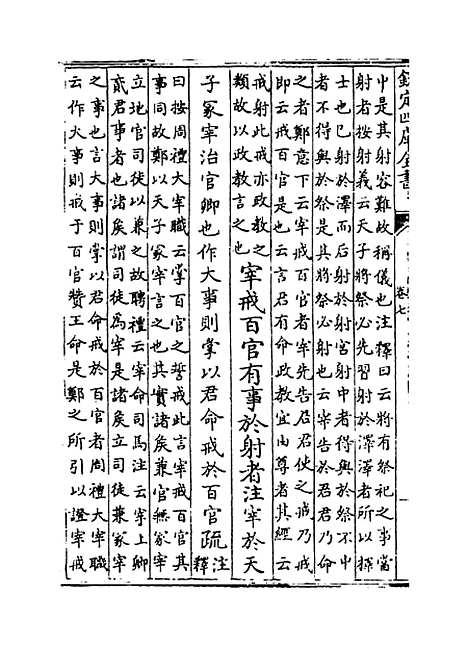 欽定四庫全書
卷七
中是其射容難故稱儀也注釋曰云將有祭祀之事當
射者按射義云天子將祭必先習射於澤澤者所以擇
士也已射於澤而后射於射宫射中者得與於祭不中
者不得與於祭是其將祭必射也云宰告於君君乃命
之者鄭意下云宰戒百官者宰先告君君使之戒乃戒
即云戒百官是也云言君有命政教宜由尊者其經云
戒射此戒亦政教之
類故以政教言之也
宰戒百官有事於射者注宰於天
子冢宰治官卿也作大事則掌以君命戒於百官疏
注
釋
曰按周禮大宰職云掌百官之誓戒此言宰戒百官其
事同故鄭以天子冢宰言之也其實諸矦兼官無冢宰
立地官司徒以兼之故聘禮云宰命司馬注云宰上卿
貳君事者也諸矦謂司徒為宰是諸矦立司徒兼冢宰
之事也言大事則掌以君命戒於百官者周禮大宰職
云作大事則戒于百官贊王命是鄭之所引以證宰戒